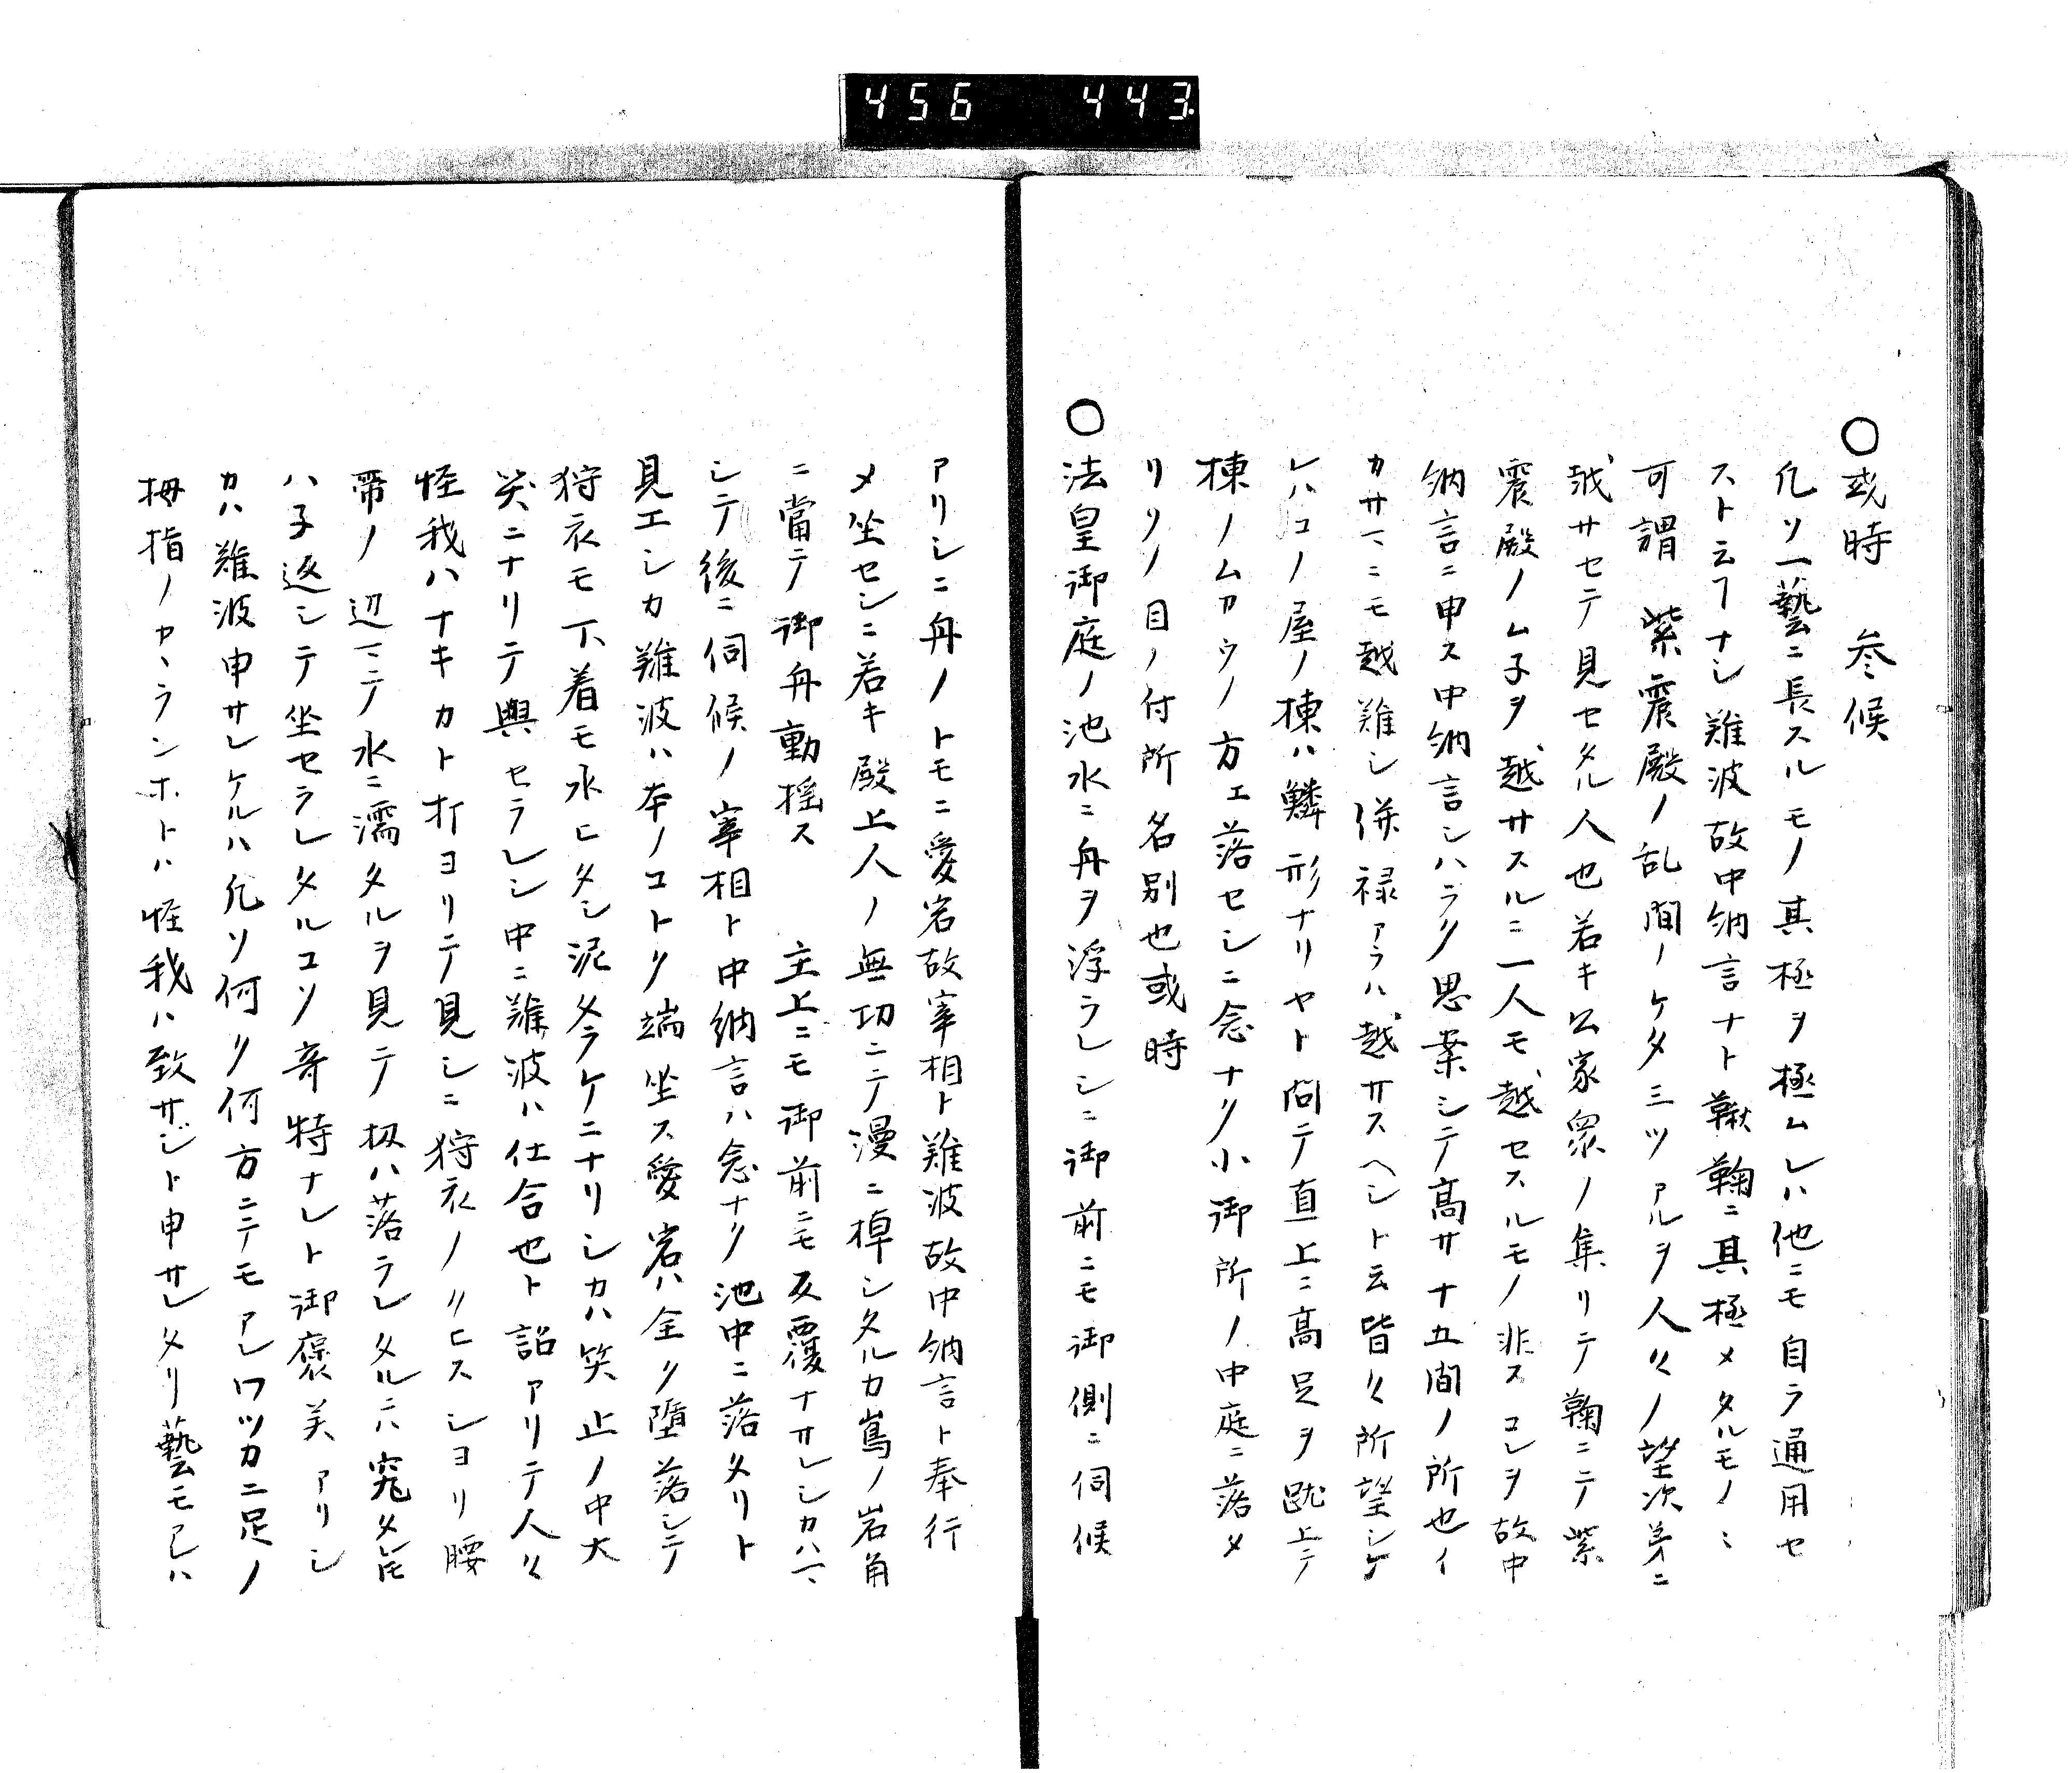 456 443
〇或時 参候
凡ソ一藝ニ長スルモノ其極ヲ極ムレハ他ニモ自ラ通用セ
スト云ヿナシ難波故中納言ナト鞦鞠ニ其極メタルモノミ
可謂 紫震殿ノ乱間ノケタ三ツアルヲ人々ノ望次第ニ
越サセテ見セタル人也若キ公家衆ノ集リテ鞠ニテ紫
震殿ノム子ヲ越サスルニ一人モ越セスルモノ非スコレヲ故中
納言ニ申ス中納言シハラク思案シテ高サ十五間ノ所也イ
カサマニモ越難シ併禄アラハ越サスヘシト云皆々所望シケ
レハコノ屋ノ棟ハ鱗形ナリヤト問テ直上ニ高足ヲ蹴上テ
棟ノムカウノ方エ落セシニ念ナク小御所ノ中庭ニ落タ
リソノ目ノ付所名別也或時
〇法皇御庭ノ池水ニ舟ヲ浮ラレシニ御前ニモ御側ニ伺候
アリシニ舟ノトモニ愛宕故宰相ト難波故中納言ト奉行
メ坐セシニ若キ殿上人ノ無功ニテ漫ニ棹シタルカ嶌ノ岩角
ニ當テ御舟動揺ス 主上ニモ御前ニモ反覆ナサレシカハマ
シテ後ニ伺候ノ宰相ト中納言ハ念ナク池中ニ落タリト
見エシカ難波ハ本ノコトク端坐ス愛宕ハ全ク墮落シテ
狩衣モ下着モ水ヒタシ泥タラケニナリシカハ笑止ノ中大
笑ニナリテ興セラレシ中ニ難波ハ仕合也ト詔アリテ人々
怪我ハナキカト打ヨリテ見シニ狩衣ノリヒスシヨリ腰
帯ノ辺マテ水ニ濡タルヲ見テ扨ハ落ラレタルニハ究タレ𪜈
ハ子返シテ坐セラレタルコソ奇特ナレト御褒美アリシ
カハ難波申サレケルハ凡ソ何ク何方ニテモアレワツカニ足ノ
拇指ノカヽランホトハ怪我ハ致サジト申サレタリ藝モアレハ